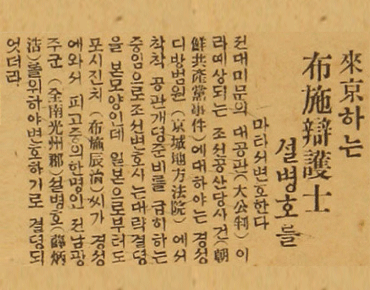 來京하는
布施辯護士
설병호를
마라서변호한다
전대미문의 대공판(大公判)이
라예상되는 조선공산당사건(朝
鮮共產黨事件)에대하야는 경성
디방법원(京城地方法院)에서
착착 공판개뎡준비를 급히하는
중임으로조선변호사는대략결뎡
을 본모양인데 일본으로부터도
포시진치(布施辰治)씨가 경성
에와서 피고중의한명인 전남광
주군(全南光州郡)설병호(薛炳
浩)를위하야변호하기로 결뎡되
엿더라